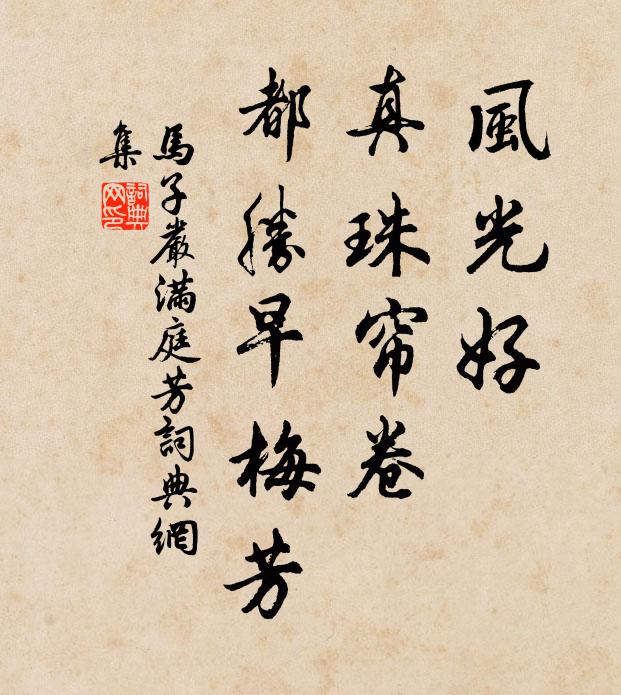 風光好
真珠帘卷
都勝早梅芳
馬子嚴滿庭芳詞典網
集
詞典
网印